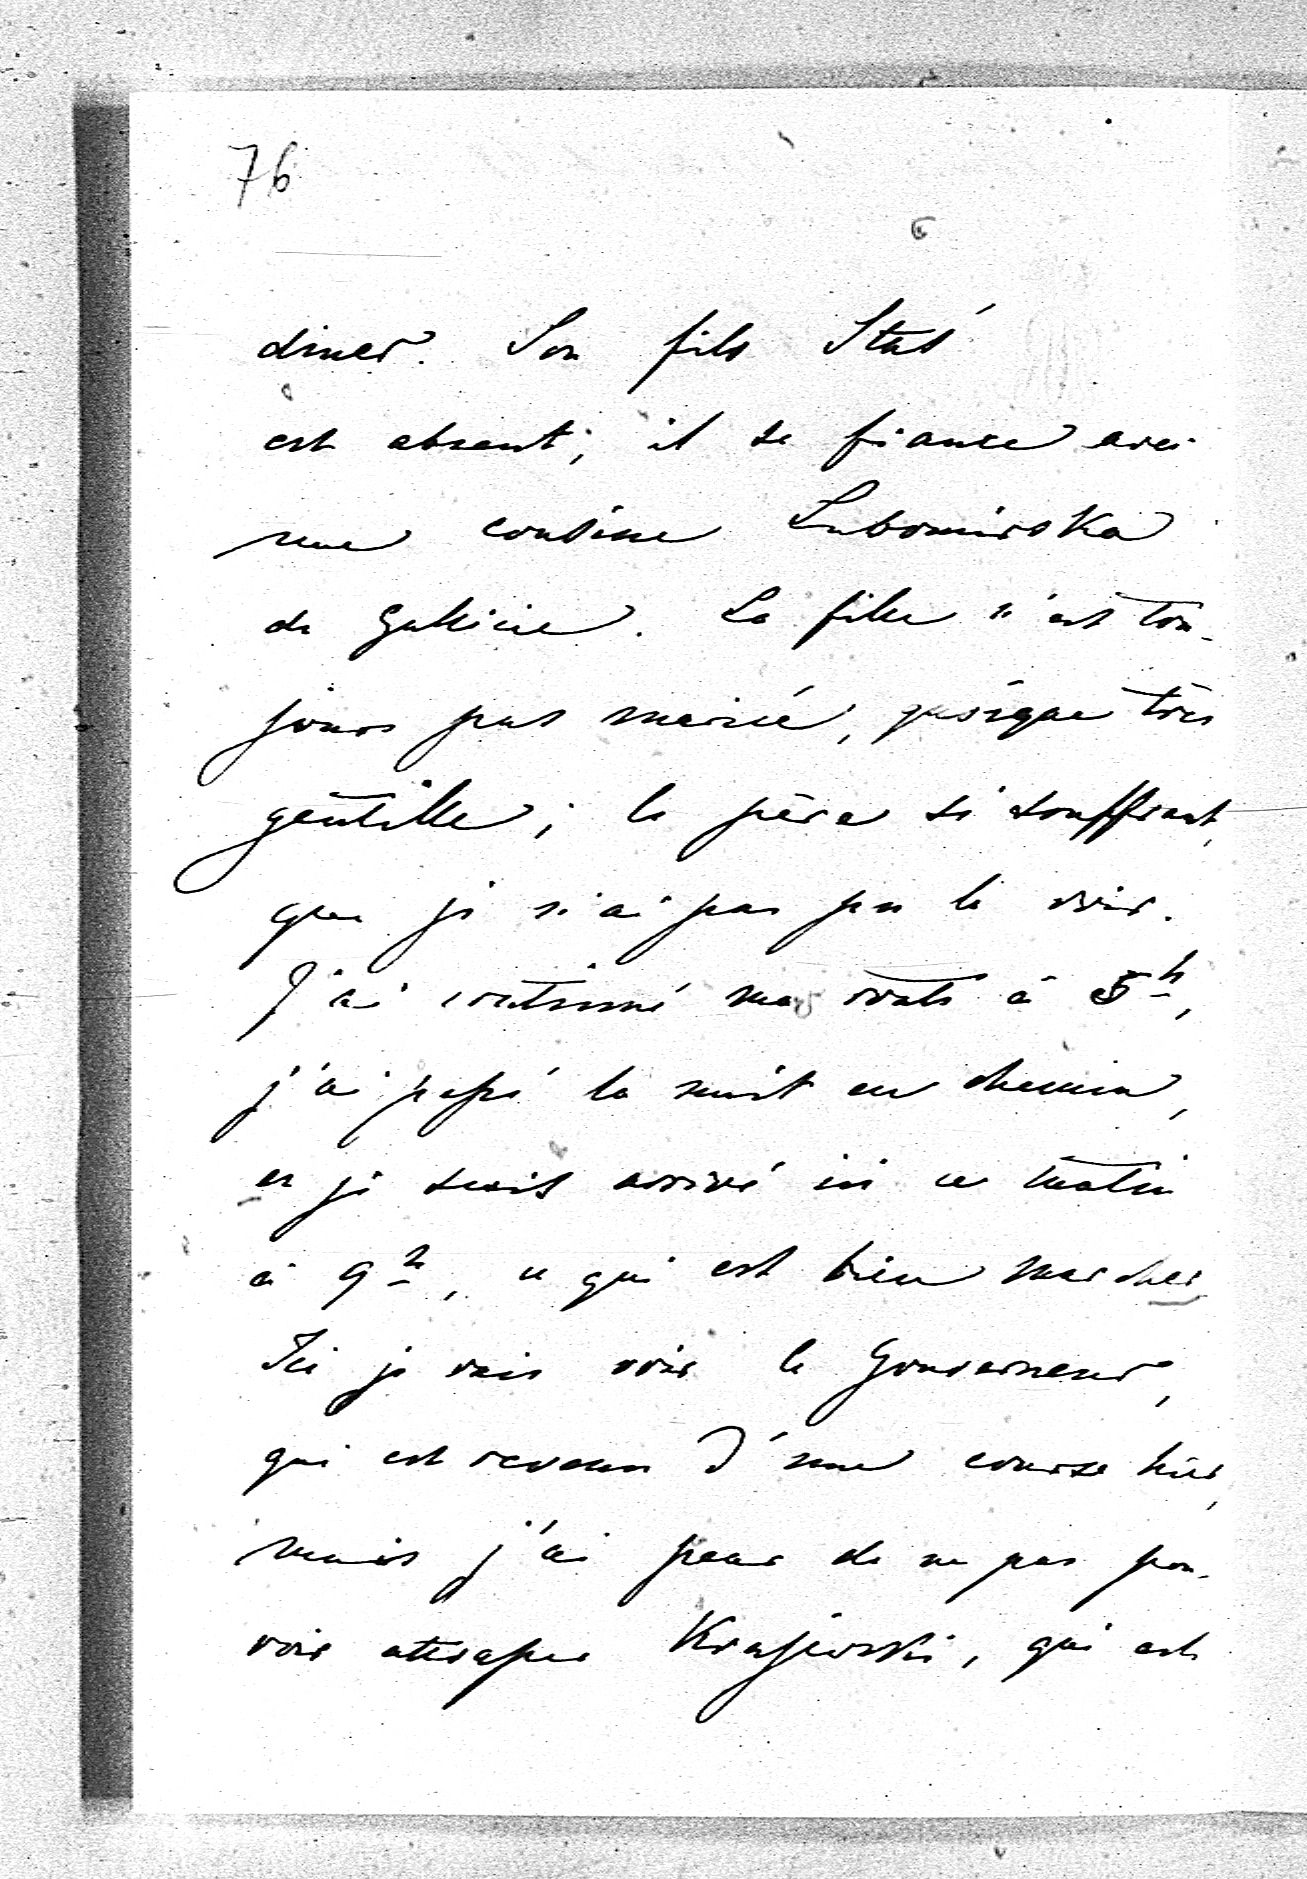 76
diner. Son fils Staś
est absent; il se fiance avec
une cousine Lubomirska
de Galicie. La fille n'est tou-
jours pas mariée, quoique très
gentille; le père si souffrant,
que je n'ai pas pu le voir.
J'ai continué ma route à 5h,
j'ai passé la nuit en chemin,
et je suis arrivé ici ce matin
à 9h, ce qui est bien marcher
Ici je vais voir le Gouverneur,
qui est revenu d'une course hier,
mais j'ai peur de ne pas pou-
voir attraper Krajewski, qui est